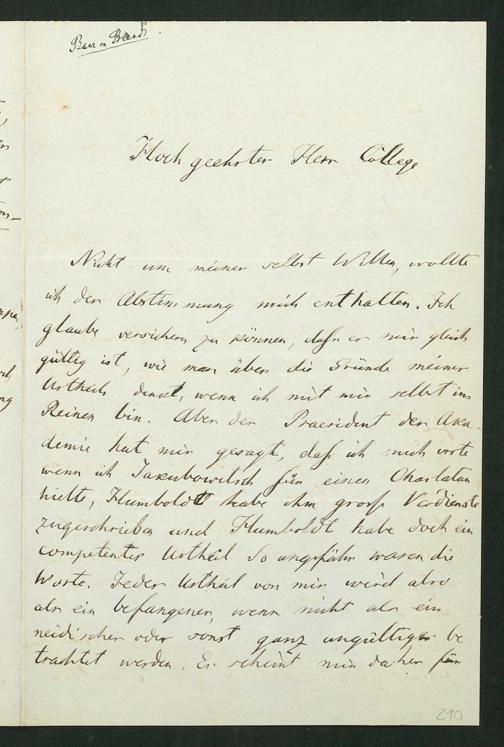 Baer an Brandt.
Hochgeehrter Herr College
Nicht um meiner selbst Willen, wollte
ich der Abstimmung mich enthalten. Ich
glaube versichern zu können, daſs es mir gleich
gültig ist, wie man über die Gründe meines
Urtheils denkt, wenn ich mit mir selbst im
Reinen bin. Aber der Praesident der Aka-
demie hat mir gesagt, daſs ich mich irrte
wenn ich Jakubowitsch für einen Charlatan
hielte, Humboldt habe ihm groſse Verdienste
zugeschrieben und Humboldt habe doch ein
competentes Urtheil. So ungefähr waren die
Worte. Jedes Urtheil von mir wird also
als ein befangenes, wenn nicht als ein
neidisches oder sonst ganz ungültiges be
trachtet werden. Es scheint mir daher für
210